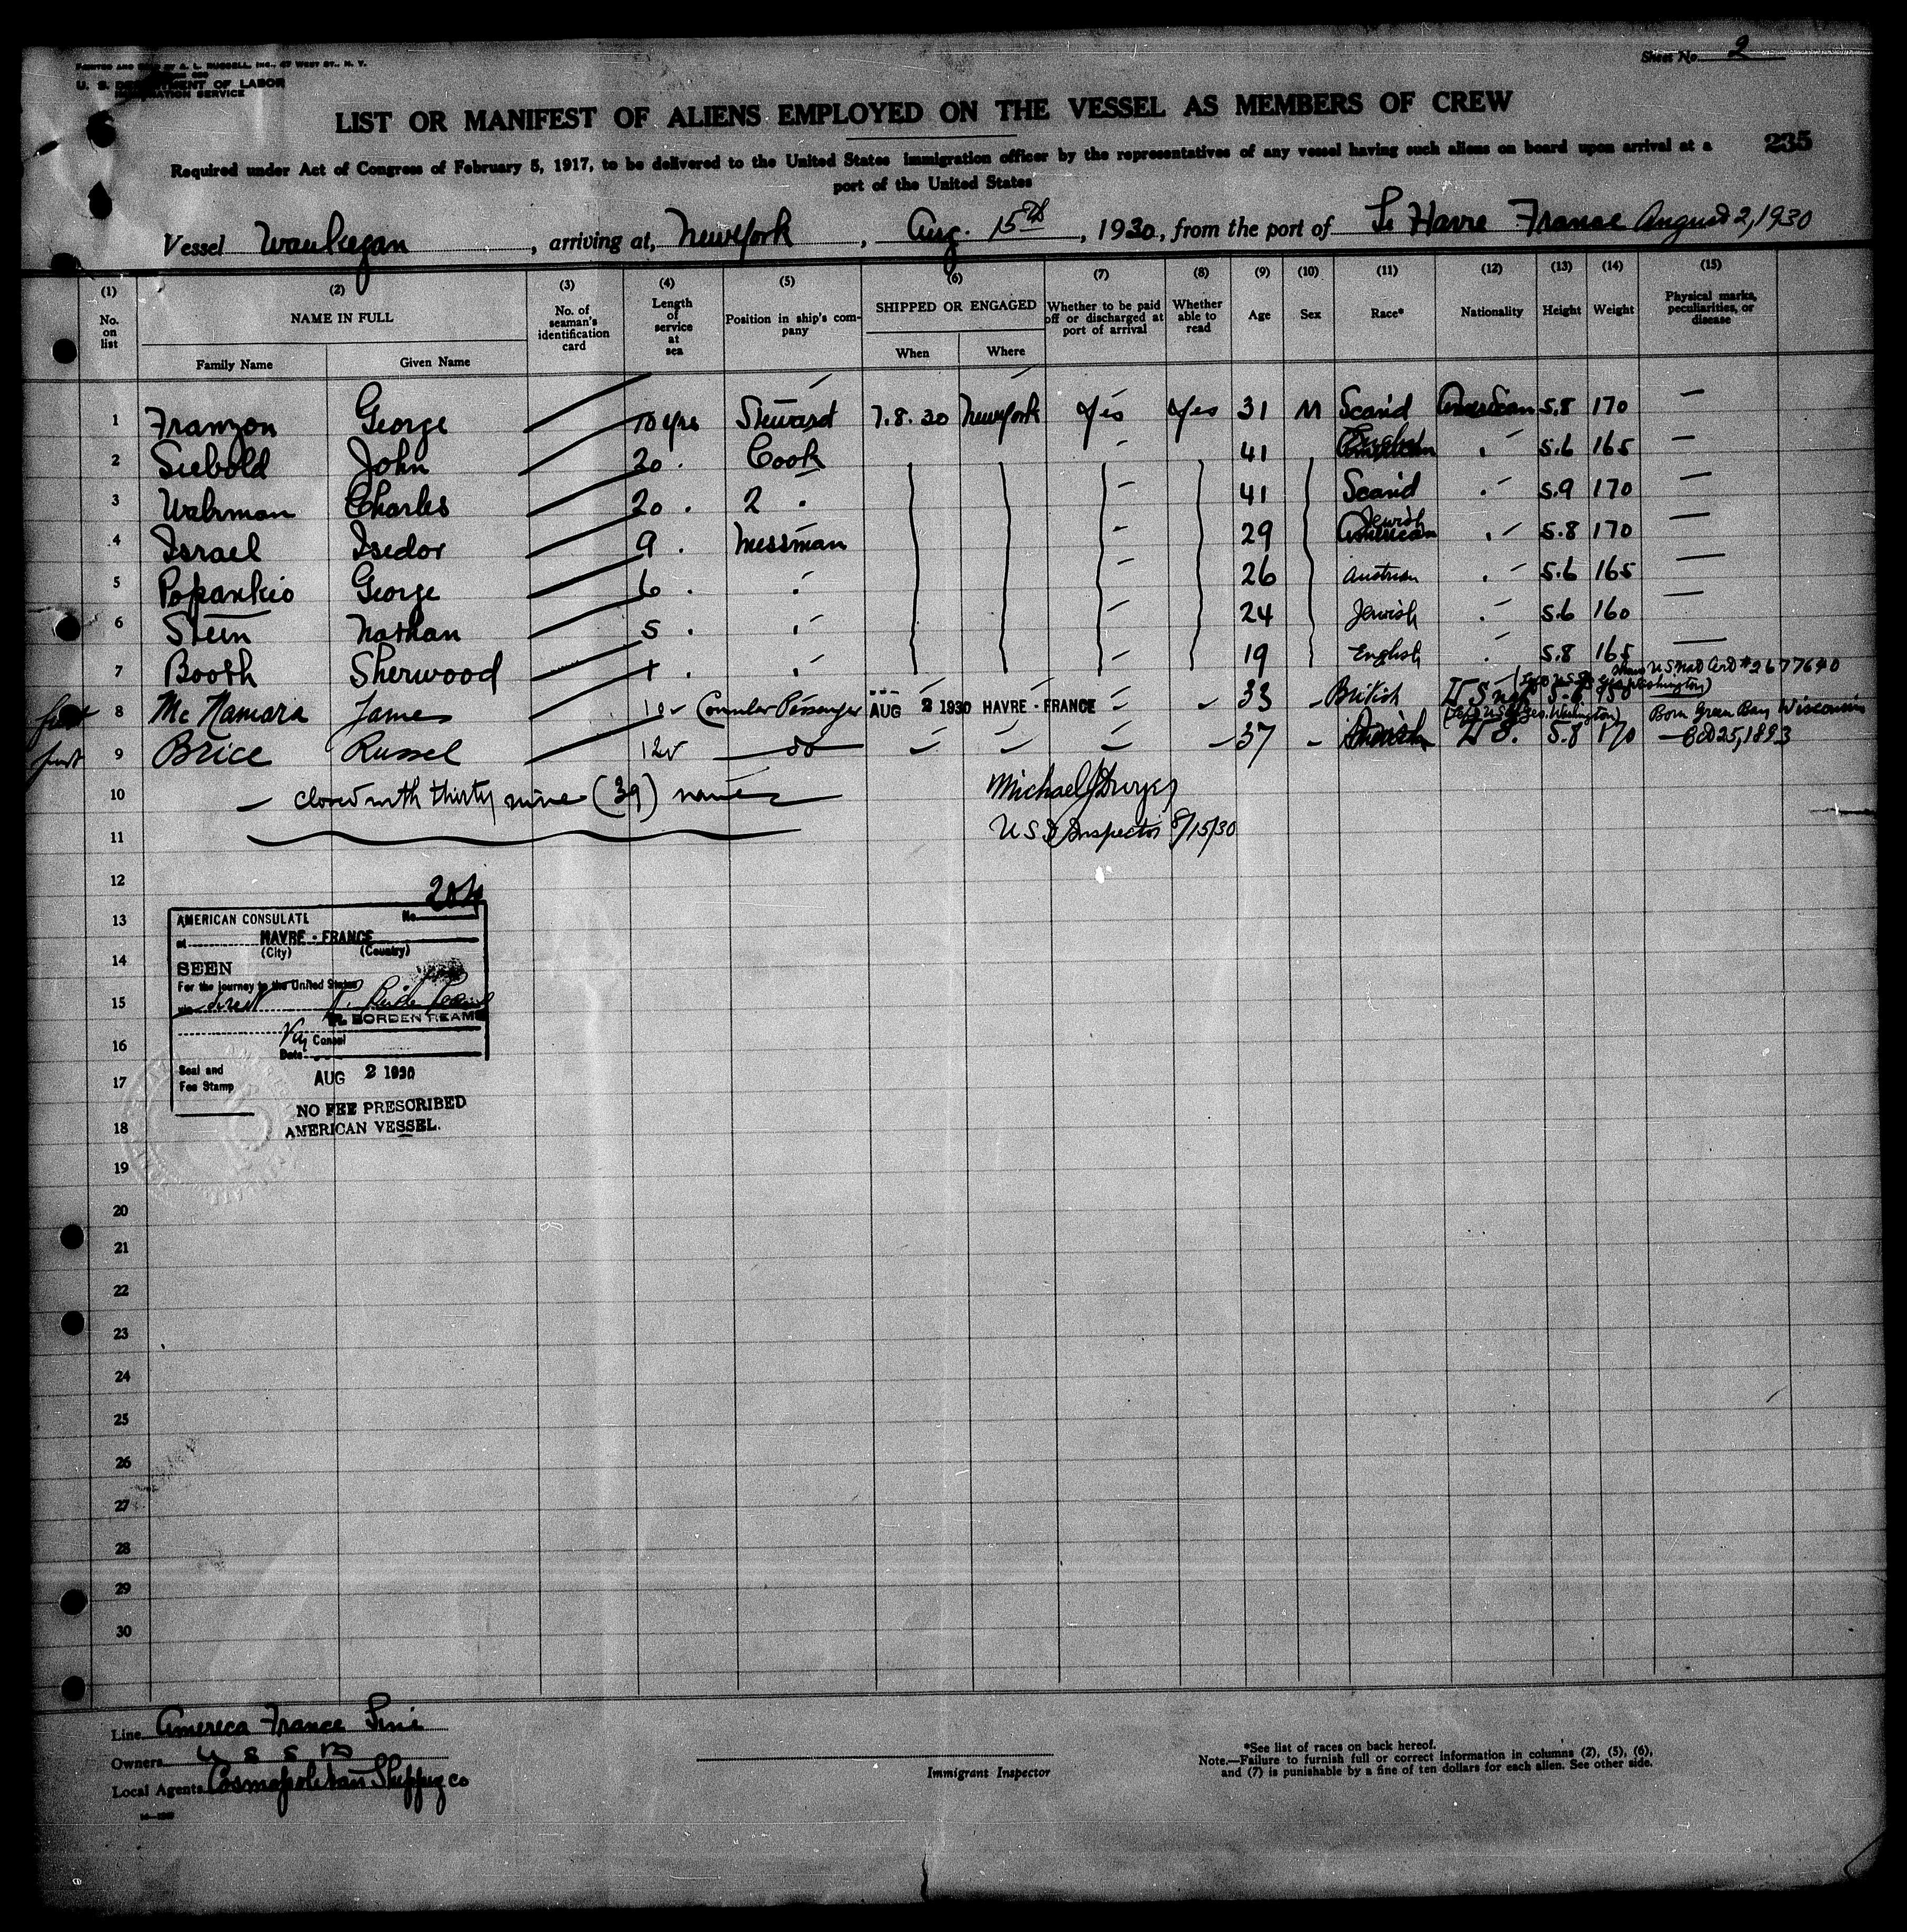 Sheet No. 2
PRINTED AND SOLD BY A. L. RUSSELL, INC., 67 WEST ST., N. Y.
U. S. DEPARTMENT OF LABOR
IMMIGRATION SERVICE
LIST OR MANIFEST OF ALIENS EMPLOYED ON THE VESSEL AS MEMBERS OF CREW
235
Required under Act of Congress of February 5, 1917, to be delivered to the United States immigration officer by the representatives of any vessel having such aliens on board upon arrival at a
port of the United States
Vessel Waukegan, arriving at, New York, Aug. 15th, 1930, from the port of Le Havre France August 2, 1930
(1) (2) (3) (4) (5) (6) (7) (8) (9) (10) (11) (12) (13) (14) (15)
No. on list NAME IN FULL No. of seaman's identification card Length of service at sea Position in ship's company SHIPPED OR ENGAGED Whether to be paid off or discharged at port of arrival Whether able to read Age Sex Race* Nationality Height Weight Physical marks, peculiarities, or disease
Family Name Given Name When Where
1 Franzon George 10 yrs Steward 7.8.30 New York Yes Yes 31 M Scand American 5.8 170 —
2 Siebold John 20 . Cook 41 . 5.6 165 —
3 Wahrman Charles 20 . 2 . 41 Scand . 5.9 170 —
4 Israel Isedor 9 . Messman 29 Jewish American . 5.8 170 —
5 Popankio George 6 . . 26 Austrian . 5.6 165 —
6 Stein Nathan 5 . . 24 Jewish . 5.6 160 —
7 Booth Sherwood 1 . . 19 English . 5.8 165 —
US Nat Cert #2677640
8 Mc Namara James 10 Consular Passenger AUG 2 1930 HAVRE - FRANCE 33 British U S
Born Green Bay Wisconsin
9 Brice Russel 12 do 37 U S. 5.8 170 Oct 25, 1893
10 — closed with thirty nine (39) names — Michael J Dwyer
11 U S I Inspector 8/15/30
12
204
13 AMERICAN CONSULATE No.
at HAVRE - FRANCE
(City) (Country)
14 SEEN
For the journey to the United States
15 via direct
R. BORDEN REAMS
16 Consul
Date
Seal and
Fee Stamp
17 AUG 2 1930
NO FEE PRESCRIBED
18 AMERICAN VESSEL.
19
20
21
22
23
24
25
26
27
28
29
30
Line America France Line
Owners U S S B
Local Agents Cosmopolitan Shipping Co
Immigrant Inspector
*See list of races on back hereof.
Note.—Failure to furnish full or correct information in columns (2), (5), (6),
and (7) is punishable by a fine of ten dollars for each alien. See other side.